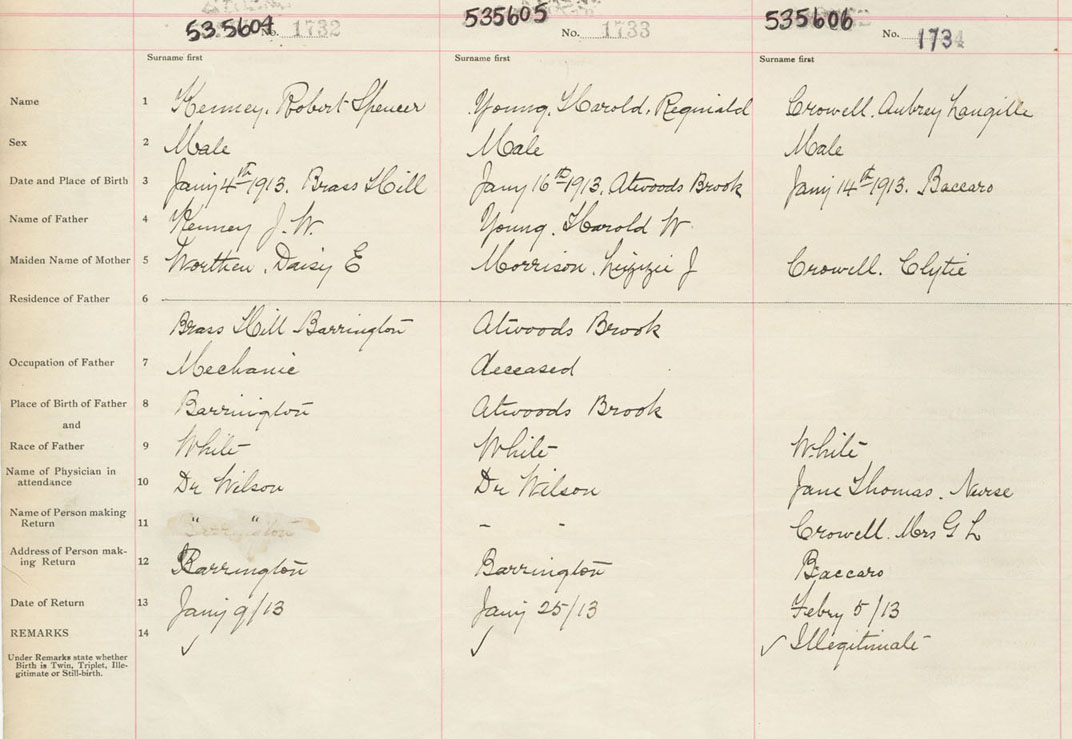 535604 No. 1732 535605 No. 1733 535606 No. 1734
Surname first Surname first Surname first
Name 1 Kenney, Robert Spencer Young, Harold, Reginald Crowell, Aubrey Langille
Sex 2 Male Male Male
Date and Place of Birth 3 Jany 4th 1913. Brass Hill Jany 16th 1913, Atwoods Brook Jany 14th 1913. Baccaro
Name of Father 4 Kenney J. W. Young, Harold W.
Maiden Name of Mother 5 Worthen, Daisy E Morrison, Lizzie J Crowell. Clytie
Residence of Father 6
Brass Hill Barrington Atwoods Brook
Occupation of Father 7 Mechanic deceased
Place of Birth of Father 8 Barrington Atwoods Brook
and
Race of Father 9 White White White
Name of Physician in
attendance 10 Dr Wilson Dr Wilson Jane Thomas. Nurse
Name of Person making
Return 11 " " - - Crowell. Mrs G L
Address of Person mak-
ing Return 12 Barrington Barrington Baccaro
Date of Return 13 Jany 9/13 Jany 25/13 Febry 5/13
REMARKS 14 ✓ ✓ ✓ Illegitimate
Under Remarks state whether
Birth is Twin, Triplet, Ille-
gitimate or Still-birth.